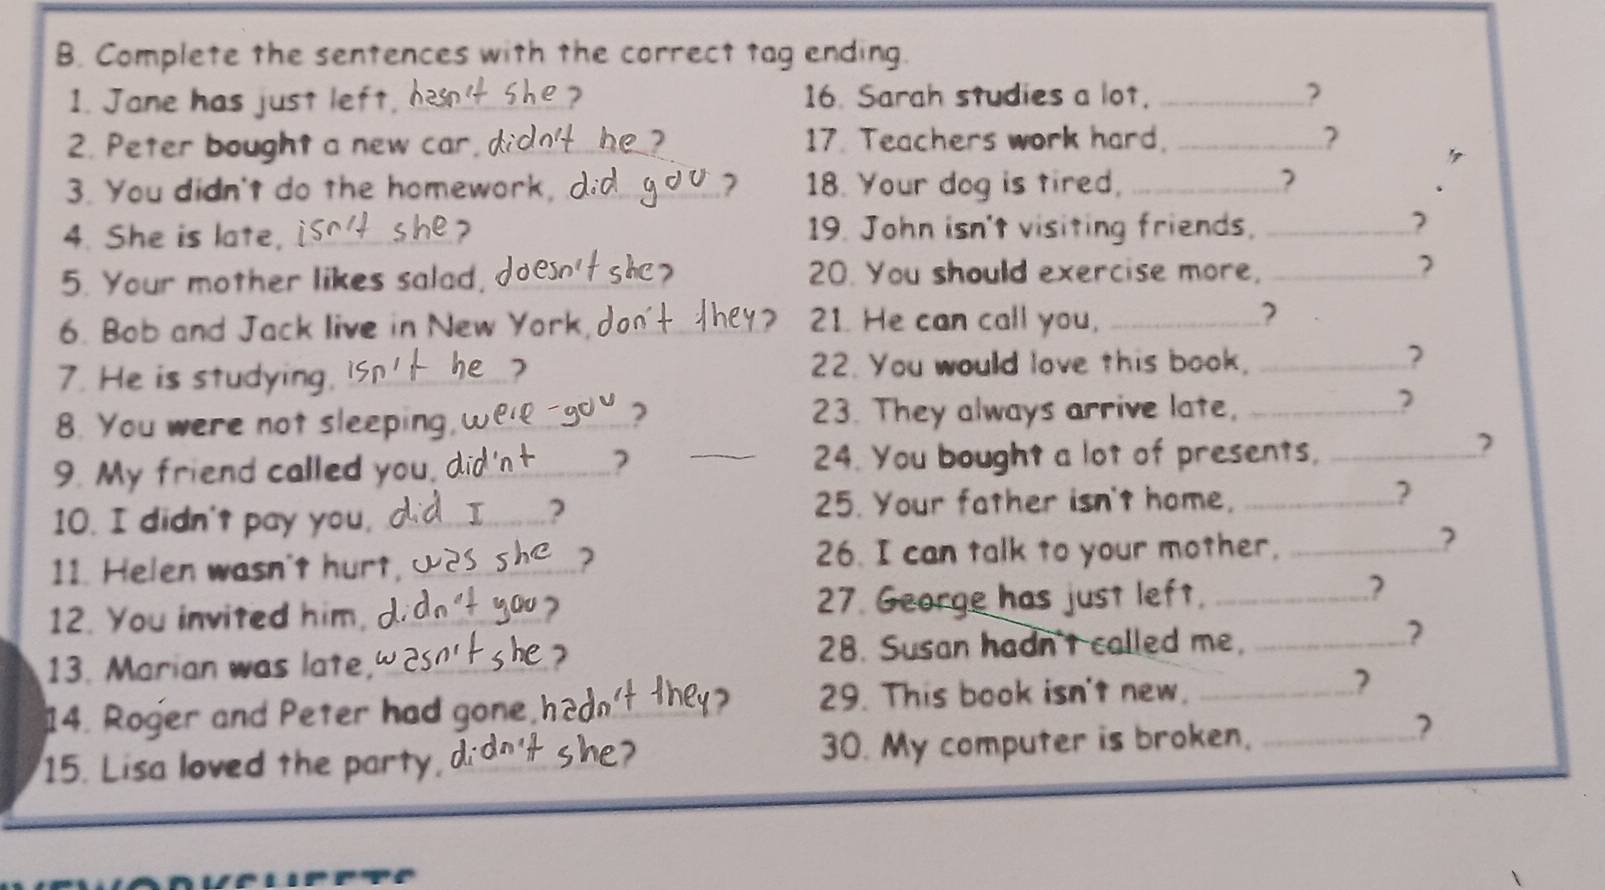 B. Complete the sentences with the correct tag ending.
1. Jane has just left, hasn't she?
2. Peter bought a new car, didn't he?
3. You didn't do the homework, did you?
4. She is late, isn't she?
5. Your mother likes salad, doesn't she?
6. Bob and Jack live in New York, don't they?
7. He is studying, isn't he ?
8. You were not sleeping, were you ?
9. My friend called you, did'nt ______?
10. I didn't pay you, did I ?
11. Helen wasn't hurt, was she ?
12. You invited him, didn't you?
13. Marian was late, wasn't she?
14. Roger and Peter had gone, hadn't they?
15. Lisa loved the party, didn't she?
16. Sarah studies a lot, ______?
17. Teachers work hard, ______?
18. Your dog is tired, ______?
19. John isn't visiting friends, ______?
20. You should exercise more, ______?
21. He can call you, ______?
22. You would love this book, ______?
23. They always arrive late, ______?
24. You bought a lot of presents, ______?
25. Your father isn't home, ______?
26. I can talk to your mother, ______?
27. George has just left, ______?
28. Susan hadn't called me, ______?
29. This book isn't new, ______?
30. My computer is broken, ______?